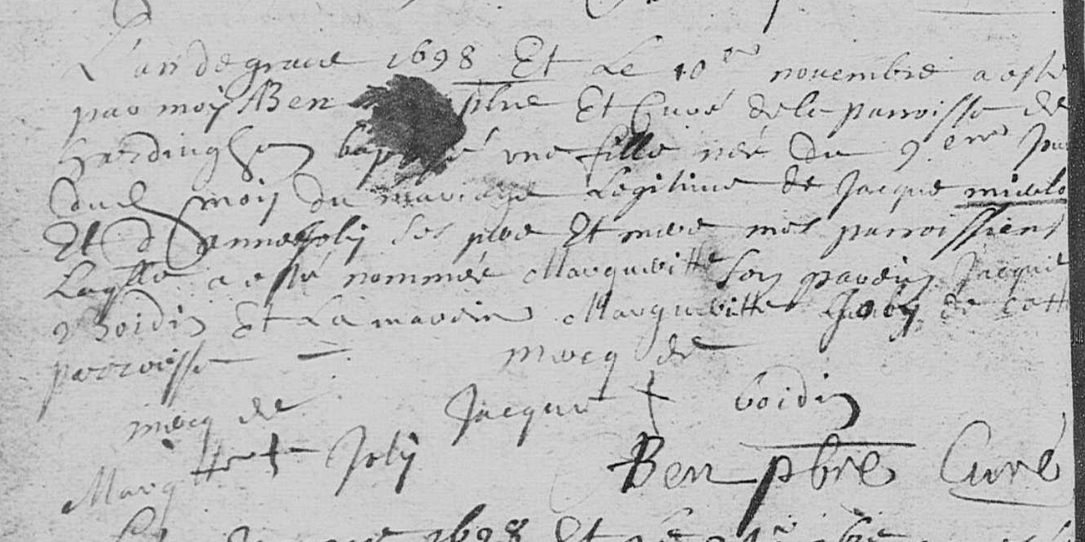 L'an de grace 1698 Et Le 10e novembre a esté
par moy Ben pbre Et Curé dela parroisse de
hardinghen baptisé une fille née du 9eme Jour
dud mois du mariage Legitime de Jacque
Et d'anne Joly ses pere Et mere mes parroissiens
Laqlle a esté nommée Margueritte son parein Jacque
Boidin Et La mareine Margueritte Joly de cette
parroisse — merq de
merq de Jacque + boidin
Margtte + Joly Ben pbre Curé
1698 Et Le